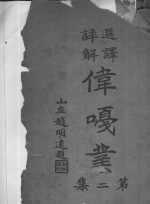 選譯
詳解
偉嘎業
第二集
山左趙明題